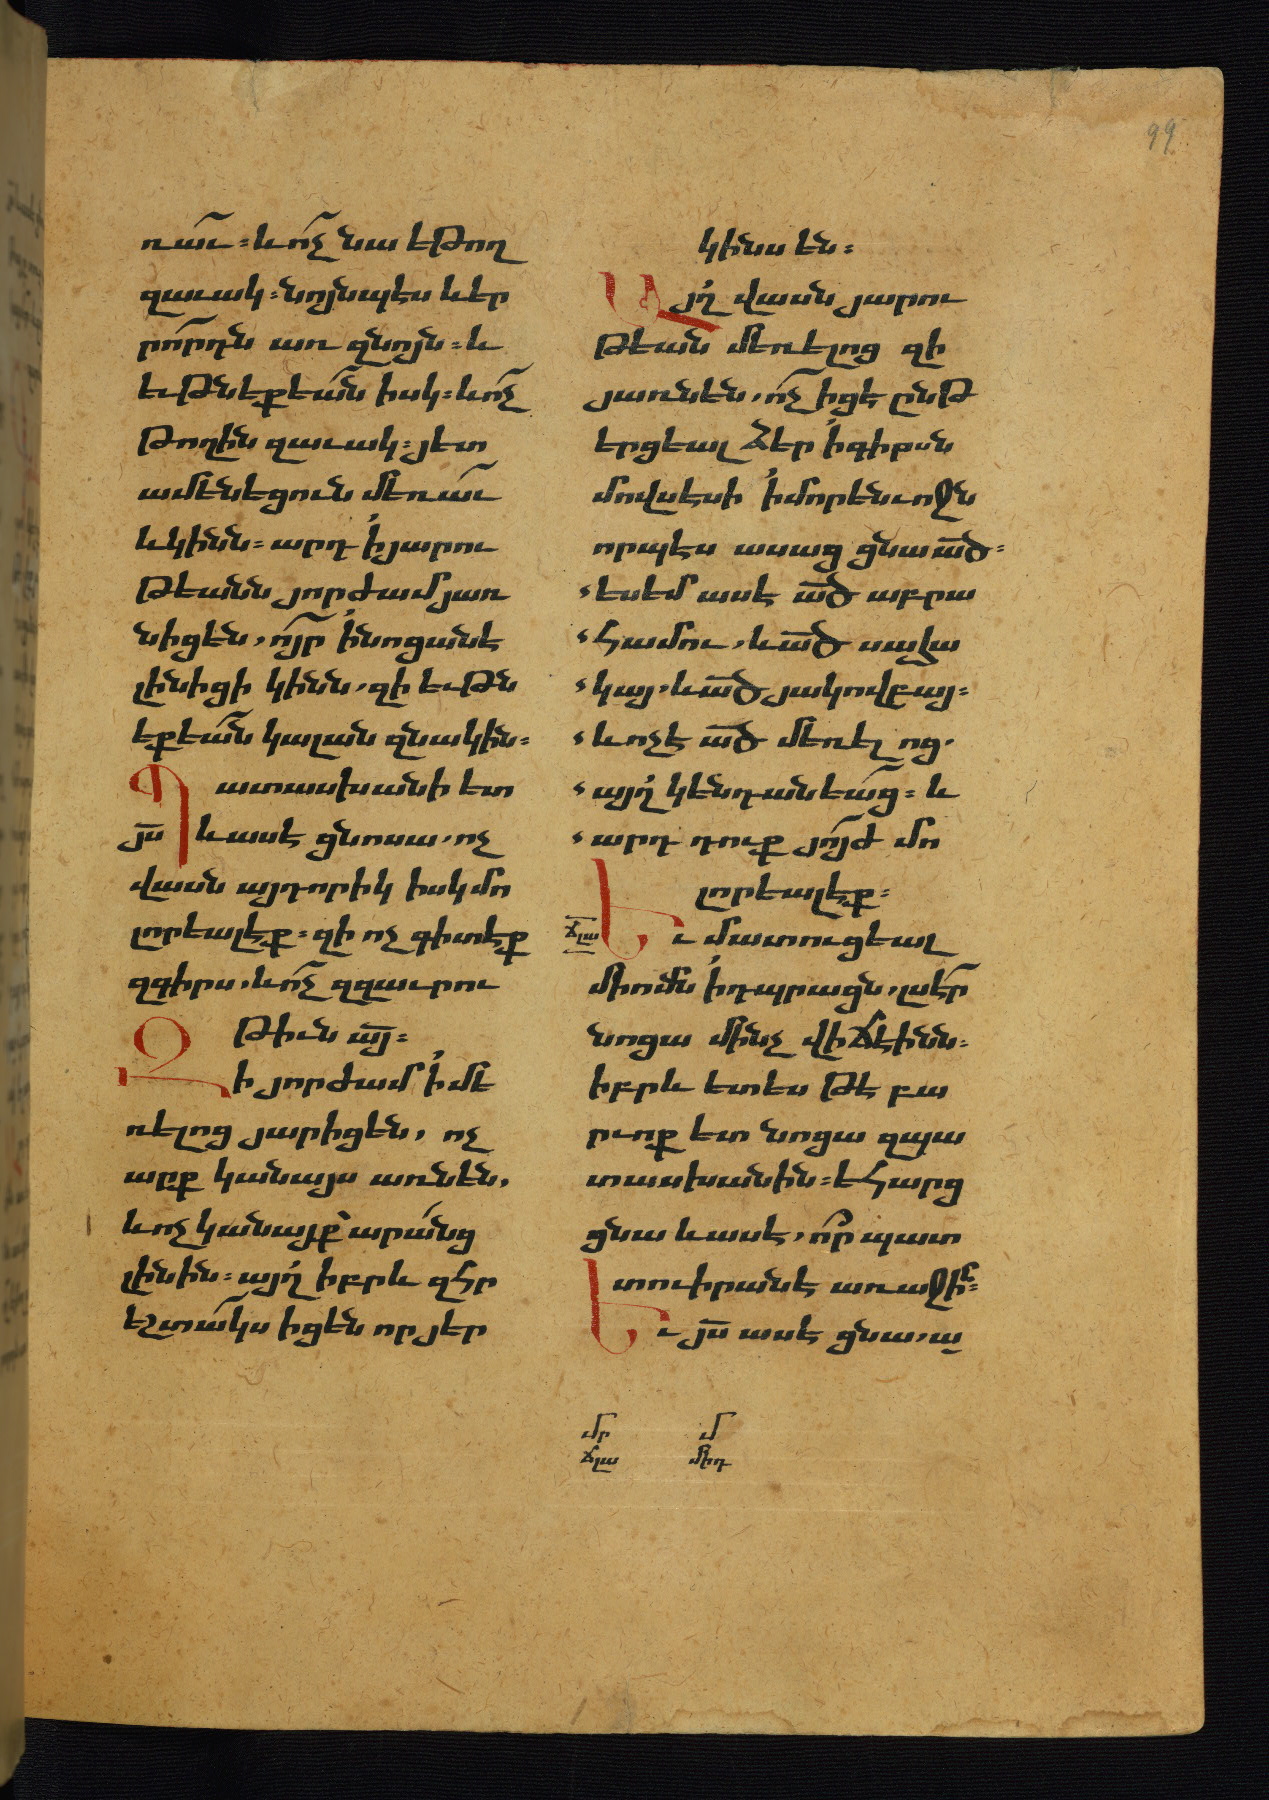 99
ռաւ։ և ոչ նա եթող
զաւակ։ նոյնպէս և եր
րորդն առ զնոյն։ և
եւթնեքեան իսկ։ և ոչ
թողին զաւակ։ յետ
ամենեցուն մեռաւ
և կինն։ արդ ի յարու
թեանն յորժամ յառ
նիցեն, ոյր ի նոցանէ
լինիցի կինն, զի եւթն
եքեան կալան զնա կին։
Պատասխանի ետ
յս և ասէ ցնոսա, ոչ
վասն այդորիկ իսկ մո
լորեալ էք։ զի ոչ գիտէք
զգիրս, և ոչ զզաւրու
թիւն այ։
Զի յորժամ ի մե
ռելոց յարիցեն, ոչ
արք կանայս առնեն,
և ոչ կանայք արանց
լինին։ այղ իբրև զհր
եշտակս իցեն որ յեր
կինս են։
Այղ վասն յարու
թեան մեռելոց զի
յառնեն, ոչ իցէ ընթ
երցեալ ձեր ի գիրսն
մովսեսի ի մորենւոջն
որպէս ասաց ցնա ած։
ես եմ ասէ ած աբրա
համու, և ած սահա
կայ, և ած յակովբայ։
և ոչ է ած մեռելոց,
այղ կենդանեաց։ և
արդ դուք յոյժ մո
լորեալ էք։
ճլա
Եւ մատուցեալ
միոմն ի դպրացն, լսեր
նոցա մինչ վիճէինն։
իբրև ետես թէ բա
րւոք ետ նոցա զպա
տասխանին։ եհարց
ցնա և ասէ, որ պատ
տուիրան է առաջին։
Եւ յս ասէ ցնա, ա
մր մ
ճլա միդ